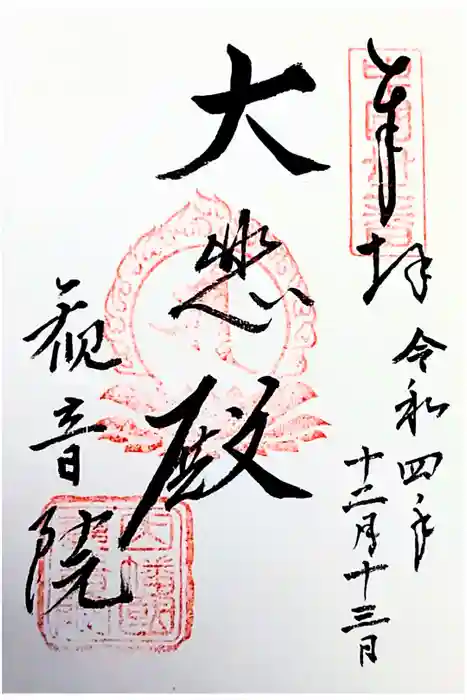 奉拝
令和四年
十二月十三日
大悲殿
観音院